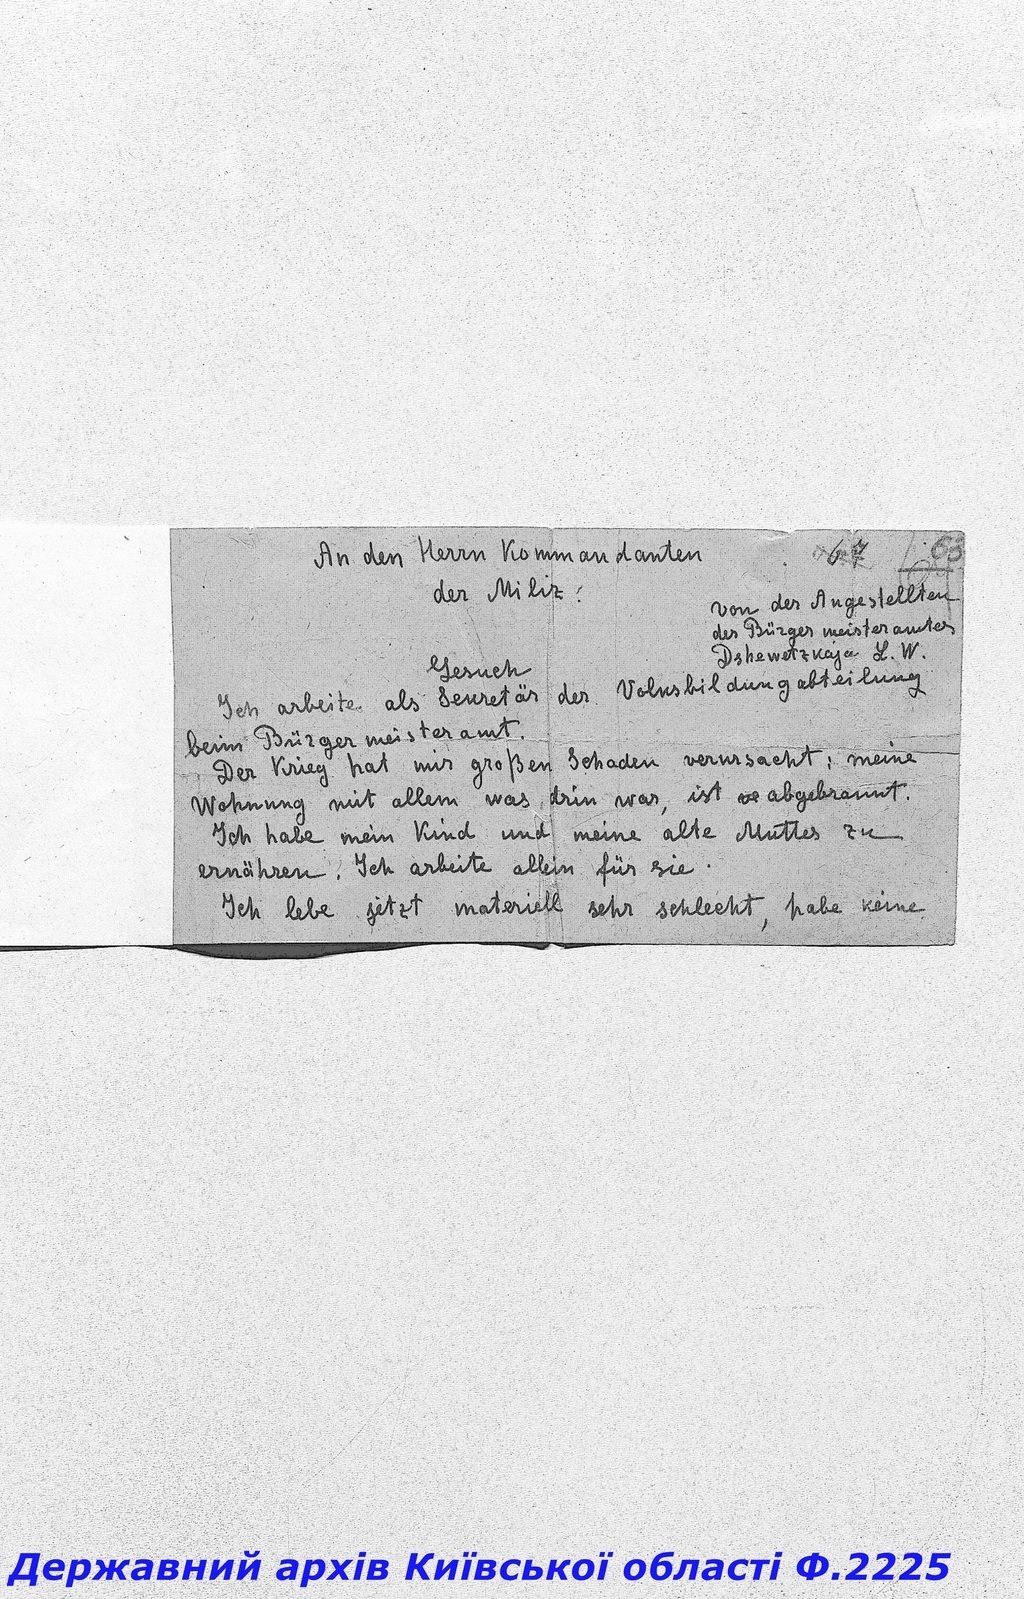 An den Herrn Kommandanten
67
63
der Miliz:
von der Angestellten
des Bürgermeisteramtes
Dshewetzkaja L. W.
Gesuch
Ich arbeite als Sekretär der Volksbildungabteilung
beim Bürgermeisteramt.
Der Krieg hat mir großen Schaden verursacht; meine
Wohnung mit allem was drin war, ist abgebrannt.
Ich habe mein Kind und meine alte Mutter zu
ernähren. Ich arbeite allein für sie.
Ich lebe jetzt materiell sehr schlecht, habe keine
Державний архів Київської області Ф.2225